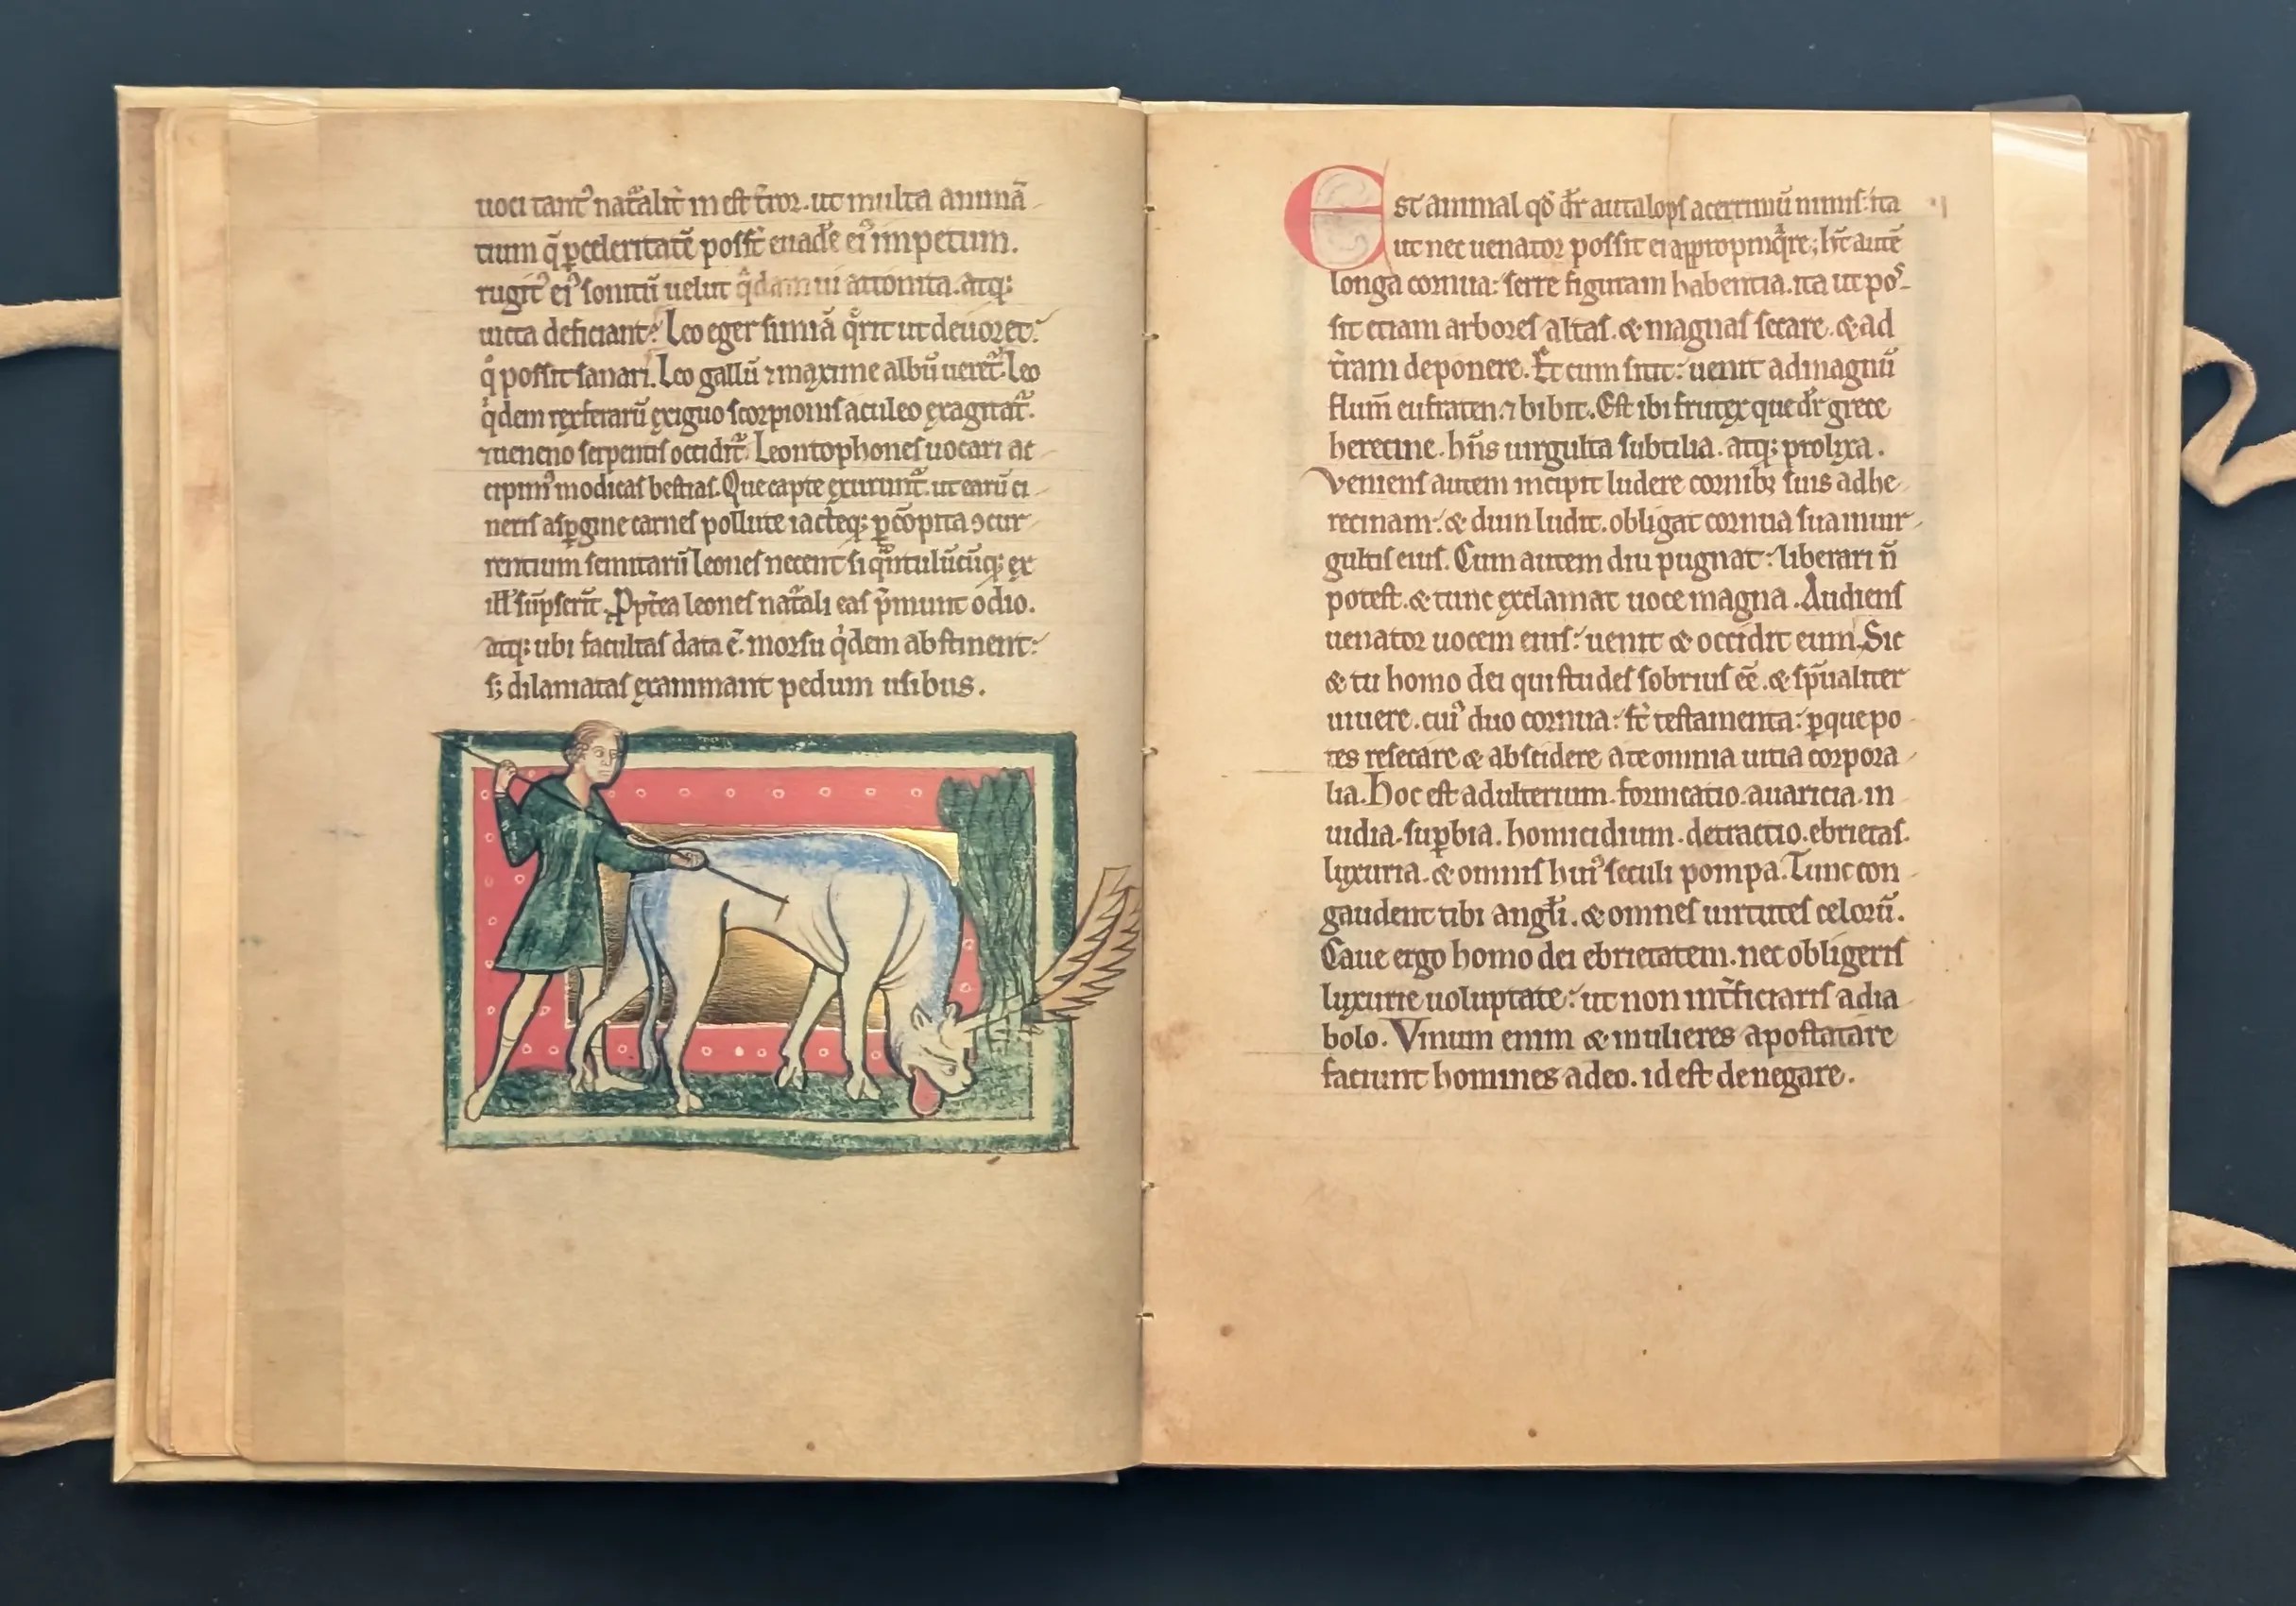 uoci tant᷒ nat͛alit͛ in est t͛ror. ut multa animā
tium q̄ ꝑ celeritatē possēt euad͛e ei᷒ impetum.
rugit᷒ ei᷒ sonitū uelut q̈dam ui attonita. atq;
uicta deficiant. Leo eger simiā q̊rit ut deuoret.
q̊ possit sanari. Leo gallū ⁊ maxime albū ueret᷑. Leo
q̇dem rex ferarū exiguo scorpionis aculeo exagitat᷑.
⁊ ueneno serpentis occidit᷑. Leontophones uocari ac
cipim᷒ modicas bestias. Que capte exurunt᷑. ut earū ci
neris asꝑgine carnes pollute iacteq; ꝑ cōpita ꝯcur
rentium semitarū leones necent si q̈ntulūcūq; ex
ill᷒ sūpserīt. Ꝓpt͛ea leones nat͛ali eas p̄munt odio.
atq; ubi facultas data ē. morsu q̇dem abstinent.
s; dilaniatas exanimant pedum nisibus.
Est animal qd̄ dr̄ autalops acerrimū nimis. ita
ut nec uenator possit ei appropinq̈re; h̄t autē
longa cornua. serre figuram habentia. ita ut pos
sit etiam arbores altas. & magnas secare. & ad
t͛ram deponere. Et cum sitit. uenit ad magnū
flum̄ eufraten. ⁊ bibit. Est ibi frutex que dr̄ grece
herecine. hn̄s uirgulta subtilia. atq; prolixa.
Veniens autem incipit ludere cornibꝫ suis ad he
recinam. & dum ludit. obligat cornua sua in uir
gultis eius. Cum autem diu pugnat. liberari n̄
potest. & tunc exclamat uoce magna. Audiens
uenator uocem eius. uenit & occidit eum. Sic
& tu homo dei qui studes sobrius eē. & sp̄ualiter
uiuere. cui᷒ duo cornua. s͛t testamenta. ꝑ que po
tes resecare & abscidere a te omnia uitia corpora
lia. Hoc est adulterium. fornicatio. auaricia. in
uidia. suꝑbia. homicidium. detractio. ebrietas.
luxuria. & omnis hui᷒ seculi pompa. Tunc con
gaudent tibi angl̄i. & omnes uirtutes celorū.
Caue ergo homo dei ebrietatem. nec obligeris
luxurie uoluptate. ut non int͛ficiaris a dia
bolo. Vinum enim & mulieres apostatare
faciunt homines a deo. id est denegare.